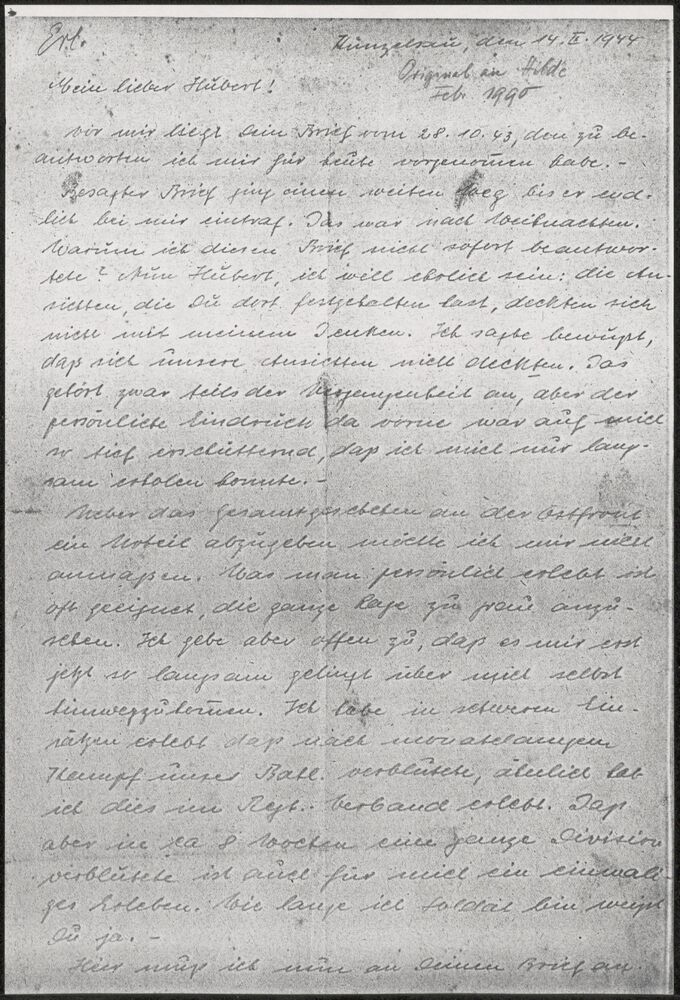 Erl.
Künzelsau, den 14. II. 1944
Original an Hilde
Feb. 1990
Mein lieber Hubert!
Vor mir liegt Dein Brief vom 28.10.43, den zu be-
antworten ich mir für heute vorgenommen habe. -
Besagter Brief ging einen weiten Weg bis er end-
lich bei mir eintraf. Das war nach Weihnachten.
Warum ich diesen Brief nicht sofort beantwor-
tete? Nun Hubert, ich will ehrlich sein: die An-
sichten, die Du dort festgehalten hast, deckten sich
nicht mit meinem Denken. Ich sagte bewußt,
daß sich unsere Ansichten nicht deckten. Das
gehört zwar teils der Vergangenheit an, aber der
persönliche Eindruck da vorne war auf mich
so tief erschütternd, daß ich mich nur lang-
sam erholen konnte. -
Ueber das Gesamtgeschehen an der Ostfront
ein Urteil abzugeben möchte ich mir nicht
anmaßen. Was man persönlich erlebt ist
oft geeignet, die ganze Lage zu grau anzu-
sehen. Ich gebe aber offen zu, daß es mir erst
jetzt so langsam gelingt über mich selbst
hinwegzukommen. Ich habe in schweren Ein-
sätzen erlebt daß nach monatelangem
Kampf unser Batl. verblutete, ähnlich hab
ich dies im Regt. Verband erlebt. Daß
aber in ca 8 Wochen eine ganze Division
verblutete ist auch für mich ein einmali-
ges Erleben. Wie lange ich Soldat bin weißt
Du ja. -
Hier muß ich nun an Deinen Brief an-